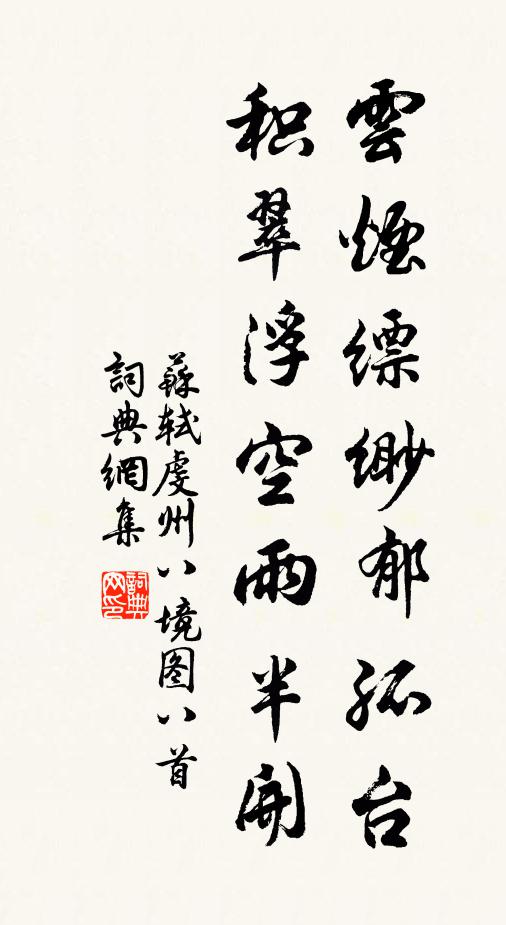 雲煙縹緲郁孤台
积翠浮空雨半開
蘇轼虔州八境图八首
詞典網集
詞典网印